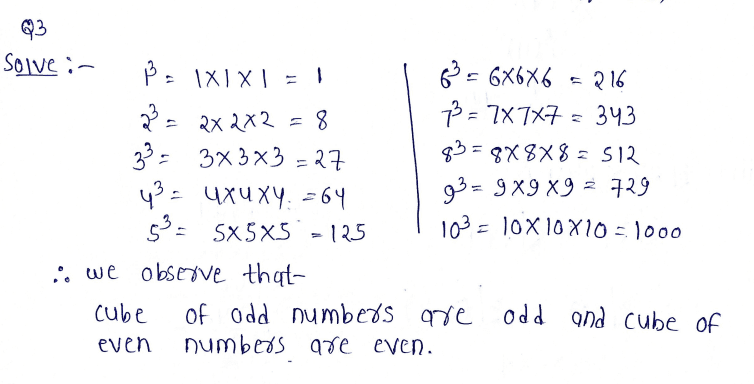 Q3
Solve :-
1³ = 1X1X1 = 1
2³ = 2X2X2 = 8
3³ = 3X3X3 = 27
4³ = 4X4X4 = 64
5³ = 5X5X5 = 125
6³ = 6X6X6 = 216
7³ = 7X7X7 = 343
8³ = 8X8X8 = 512
9³ = 9X9X9 = 729
10³ = 10X10X10 = 1000
∴ we observe that-
cube of odd numbers are odd and cube of
even numbers are even.